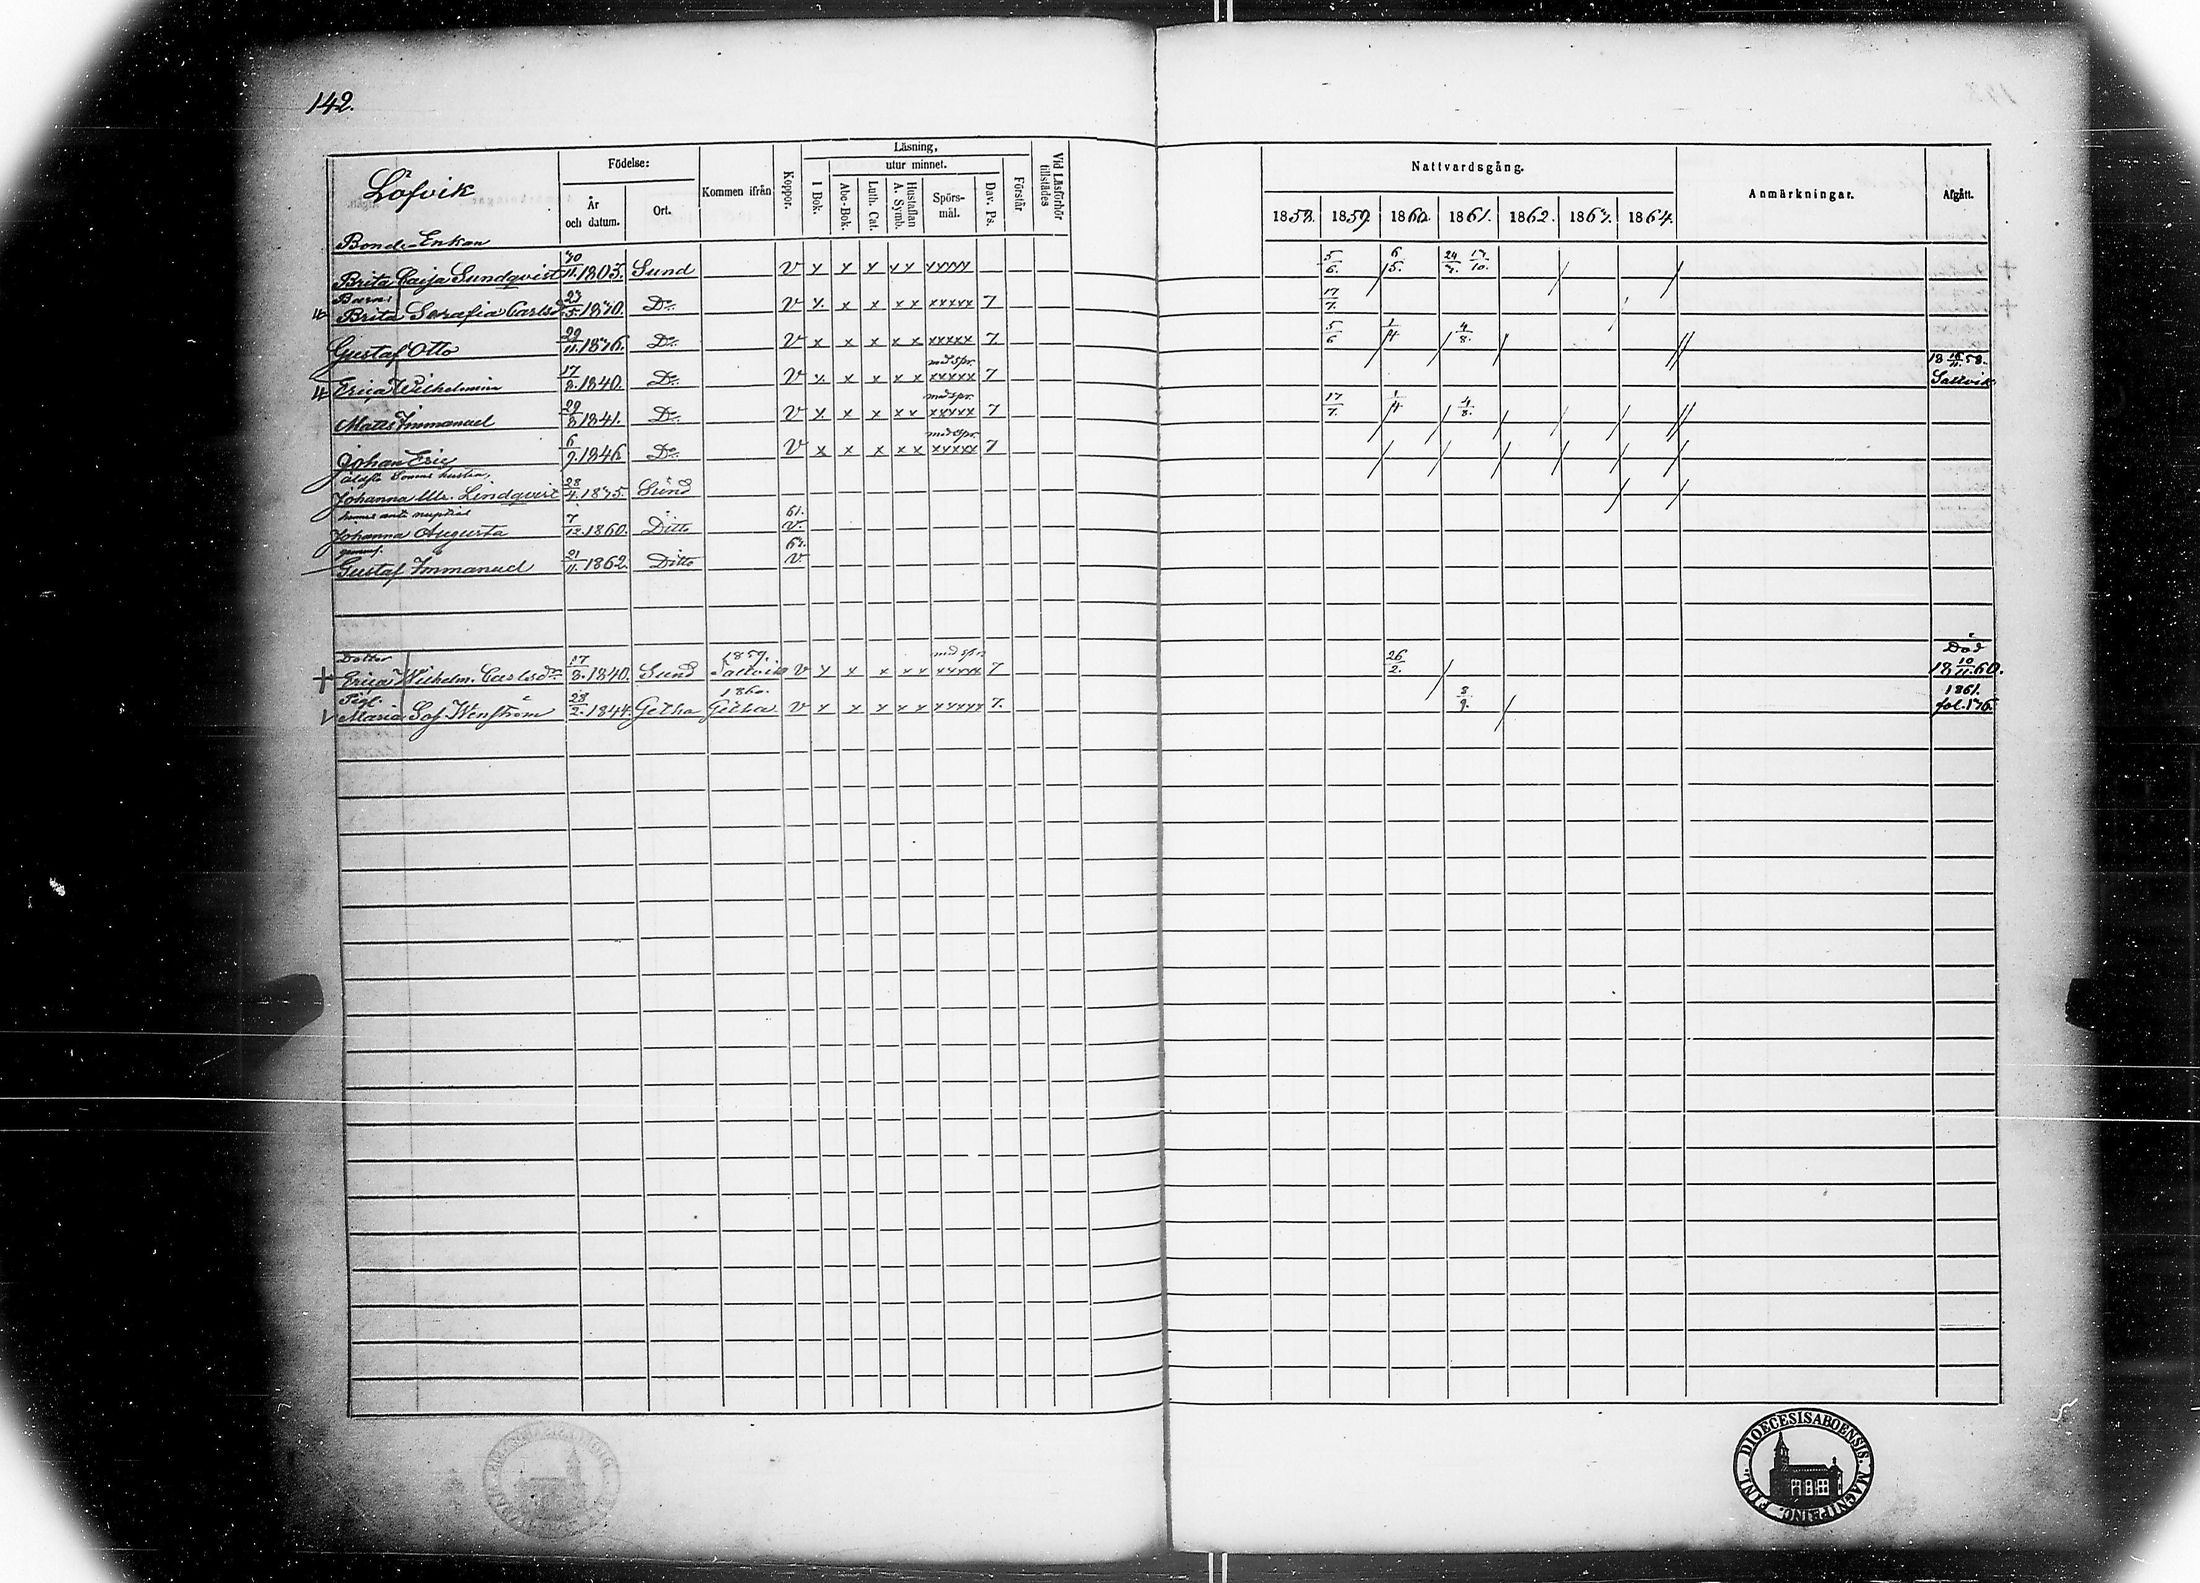 142.
Löfvik
Födelse:
År och datum.
Ort.
Kommen ifrån
Koppor.
Läsning,
utur minnet.
I Bok.
Abc-Bok.
Luth. Cat.
Hustaflan A. Symb.
Spörs-mål.
Dav. Ps.
Förstår
Vid Läsförhör tillstädes
Nattvardsgång.
1858. 1859. 1860. 1861. 1862. 1863. 1864.
Anmärkningar.
Afgått.
Bonde-Enkan
Brita Caisa Sundqvist 30/11. 1805. Sund V x x x x x xxxxx 5/6. 6/5. 24/3. 13/10.
Barn:
Brita Serafia Carlsd. 23/5. 1830. Do: V x x x x x xxxxx 7 17/7.
Gustaf Otto 29/11. 1836. Do: V x x x x x xxxxx 7 5/6 1/4 4/8.
med spr. 18 16/11. 58.
Erica Wilhelmina 17/3. 1840. Do: V x x x x x xxxxx 7 Saltvik
med spr.
Matts Immanuel 29/3 1841. Do: V x x x x x xxxxx 7 17/7. 1/4 4/8.
med spr.
Johan Eric 6/9. 1846 Do: V x x x x x xxxxx 7
äldste Sonens hustru,
Johanna Ulr. Lindqvist 28/4. 1835. Sund
hennes ante nuptias 61.
Johanna Augusta 7/12. 1860. Ditto V.
gemens. 63.
Gustaf Immanuel 21/11. 1862. Ditto V.
Dotter 1859. med spr. Död
Erica Wilhelm. Carlsdr 17/3. 1840. Sund Saltvik V x x x x x xxxxx 7 26/2. 18 10/11. 60.
Pig. 1860. 1861.
Maria Sof. Wenström 28/2. 1844. Getha Getha V x x x x x xxxxx 7. 8/9. fol. 176.
FINL. DIOECESIS ABOENSIS. MAGNI PRINC.